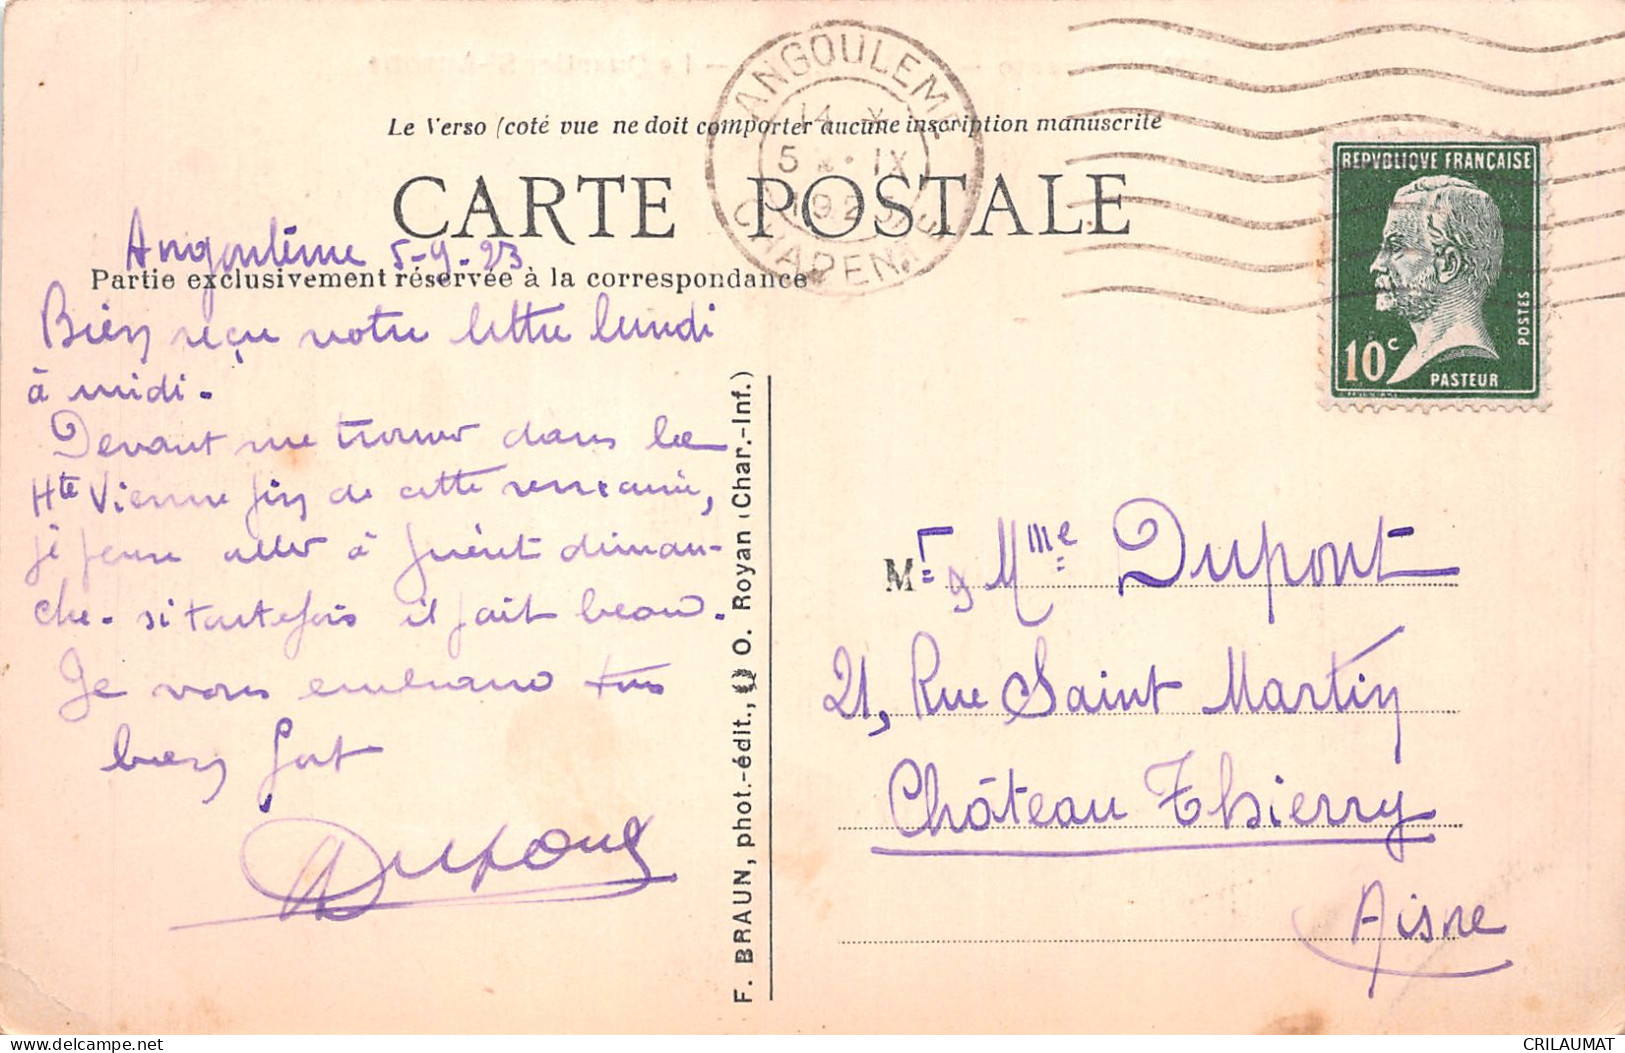 ANGOULEME
14
5 · IX
192
CHARENTE
Le Verso (coté vue ne doit comporter aucune inscription manuscrite
CARTE POSTALE
REPVBLIQVE FRANÇAISE
POSTES
10c
PASTEUR
Angoulême 5-9-23
Partie exclusivement réservée à la correspondance
Bien reçu votre lettre lundi
à midi.
Devant me trouver dans la
Hte Vienne fin de cette semaine,
je pense aller à Guéret diman-
che. si toutefois il fait beau.
Je vous embrasse tous
bien fort
Dupont
F. BRAUN, phot.-édit., O. Royan (Char.-Inf.)
Mr & Mme Dupont
21, Rue Saint Martin
Château Thierry
Aisne
CRILAUMAT